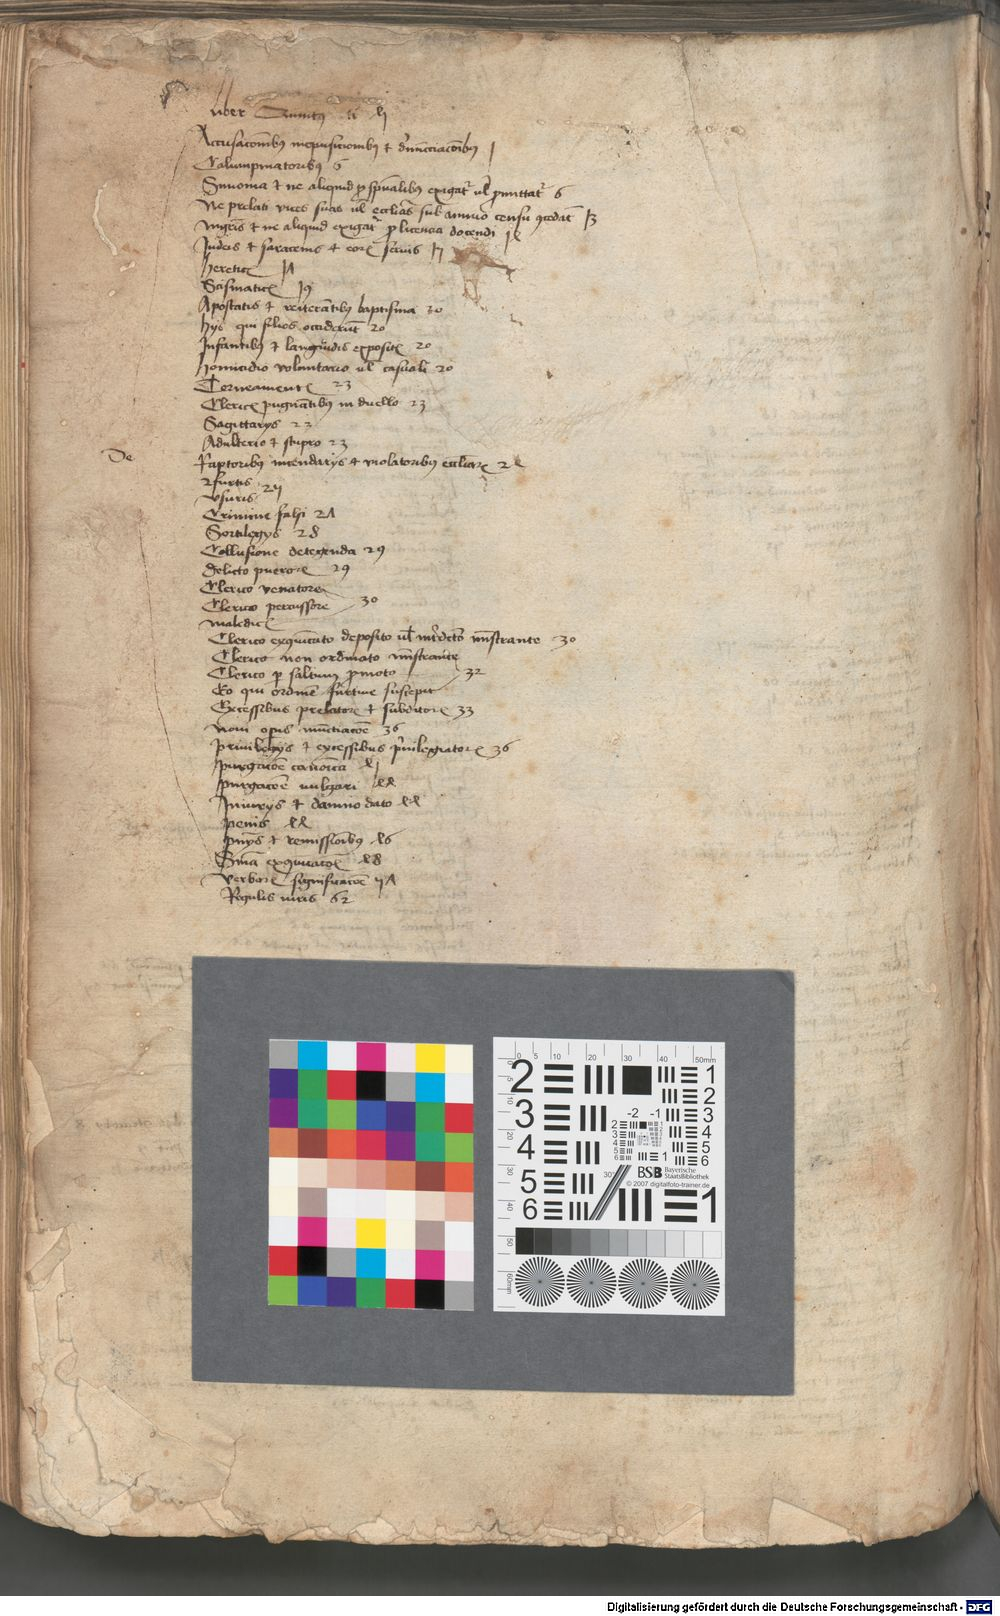 liber Quintus
Accusacoibus inquisicionibus & denuncciacoibus 1
Calumpniatoribus 6
Simonia & ne aliquid p spualibus exigat ul pmittat 6
Ne prelati vices suas ul ecclias sub annuo censu gcedat 13
mgris & ne aliquid exigat p licencia docendi 14
Judeis & saracenis & eorum servis 17
heretic 17
Scismatic 19
Apostatis & reiterantibus baptisma 20
hys qui filios occiderut 20
Infantibus & languidis exposit 20
homicidio voluntario ul casuali 20
Torneament 23
Cleric pugnatibus in duello 23
Sagittarys 23
Adulterio & stupro 23
De
Raptoribus incendarys & violatoribus eccliar 24
furtis
usuris 25
Crimine falsi 27
Sortilegys 28
Collusione detegenda 29
delicto pueror 29
Clerico venatore
Clerico percussore 30
maledic
Clerico excoicato deposito ul interdicto mistrante 30
Clerico non ordinato mistrante
Clerico p saltum pmoto 32
Eo qui ordine furtive suscepit
Excessibus prelator & subditor 33
novi opis nuncciacoe 36
privilegys & excessibus privilegiator 36
purgacoe canoica 41
purgacoe vulgari 44
Iniurys & damno dato 44
penis 44
pnys & remissioibus 46
Snia excoicacois 48
verbor significacoe 57
Regulis iuris 62
0 5 10 20 30 40 50mm
2 3 4 5 6
1 2 3 4 5 6
-2 -1
1
BSB Bayerische StaatsBibliothek
© 2007 digitalfoto-trainer.de
1
Digitalisierung gefördert durch die Deutsche Forschungsgemeinschaft - DFG